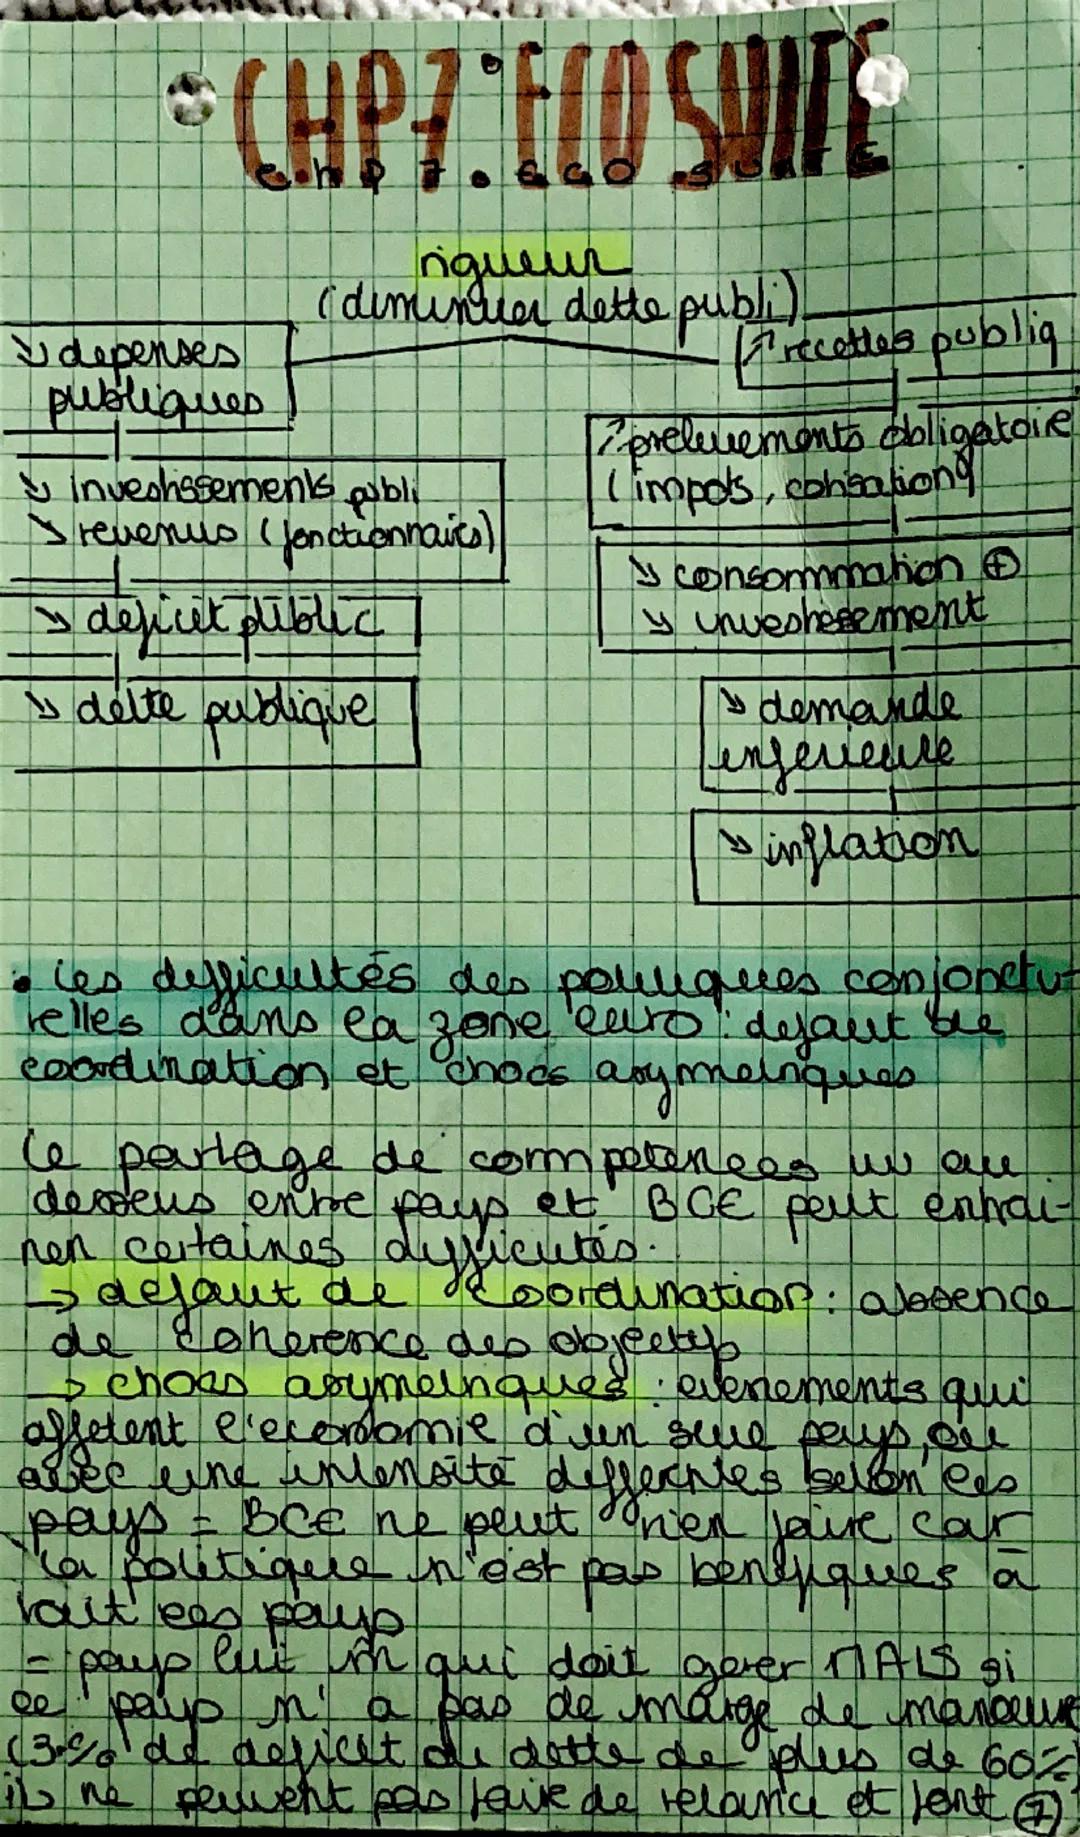 CHP7: ECO SUITE
chp 7. eco suite
rigueur
(diminuer dette publi)
↘ depenses
publiques
↘ investissements publi
↘ revenus (fonctionnaires)
↘ deficit public
↘ dette publique
↗ recettes publiq
↗ prelevements obligatoire
(impots, cotisations)
↘ consommation ⊕
↘ investissement
↘ demande
inferieure
↘ inflation
• les difficultés des politiques conjonctu-
relles dans la zone euro : defaut de
coordination et chocs asymetriques
le partage de competences vu au
dessus entre pays et BCE peut entrai-
ner certaines difficultés.
→ defaut de coordination : absence
de coherence des objectifs
→ chocs asymetriques : evenements qui
affetent l'economie d'un seul pays, ou
avec une intensité differentes selon les
pays = BCE ne peut rien faire car
la politique n'est pas benefiques à
tout les pays
= pays lui m̂ qui doit gerer MAIS si
le pays n'a pas de marge de manœuvre
(3% de deficit ou dette de plus de 60%)
ils ne peuvent pas faire de relance et font ⑦